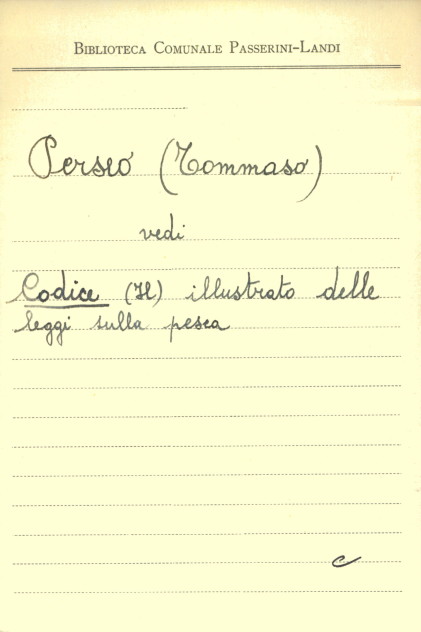 BIBLIOTECA COMUNALE PASSERINI-LANDI
Perseo (Tommaso)
vedi
Codice (Il) illustrato delle
leggi sulla pesca
c